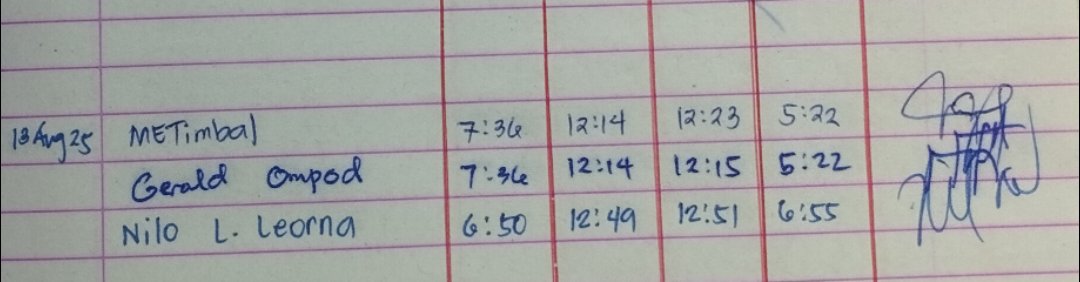 13 Aug 25 METimbal 7:36 12:14 12:23 5:22
Gerald Ompod 7:36 12:14 12:15 5:22
Nilo L. Leorna 6:50 12:49 12:51 6:55